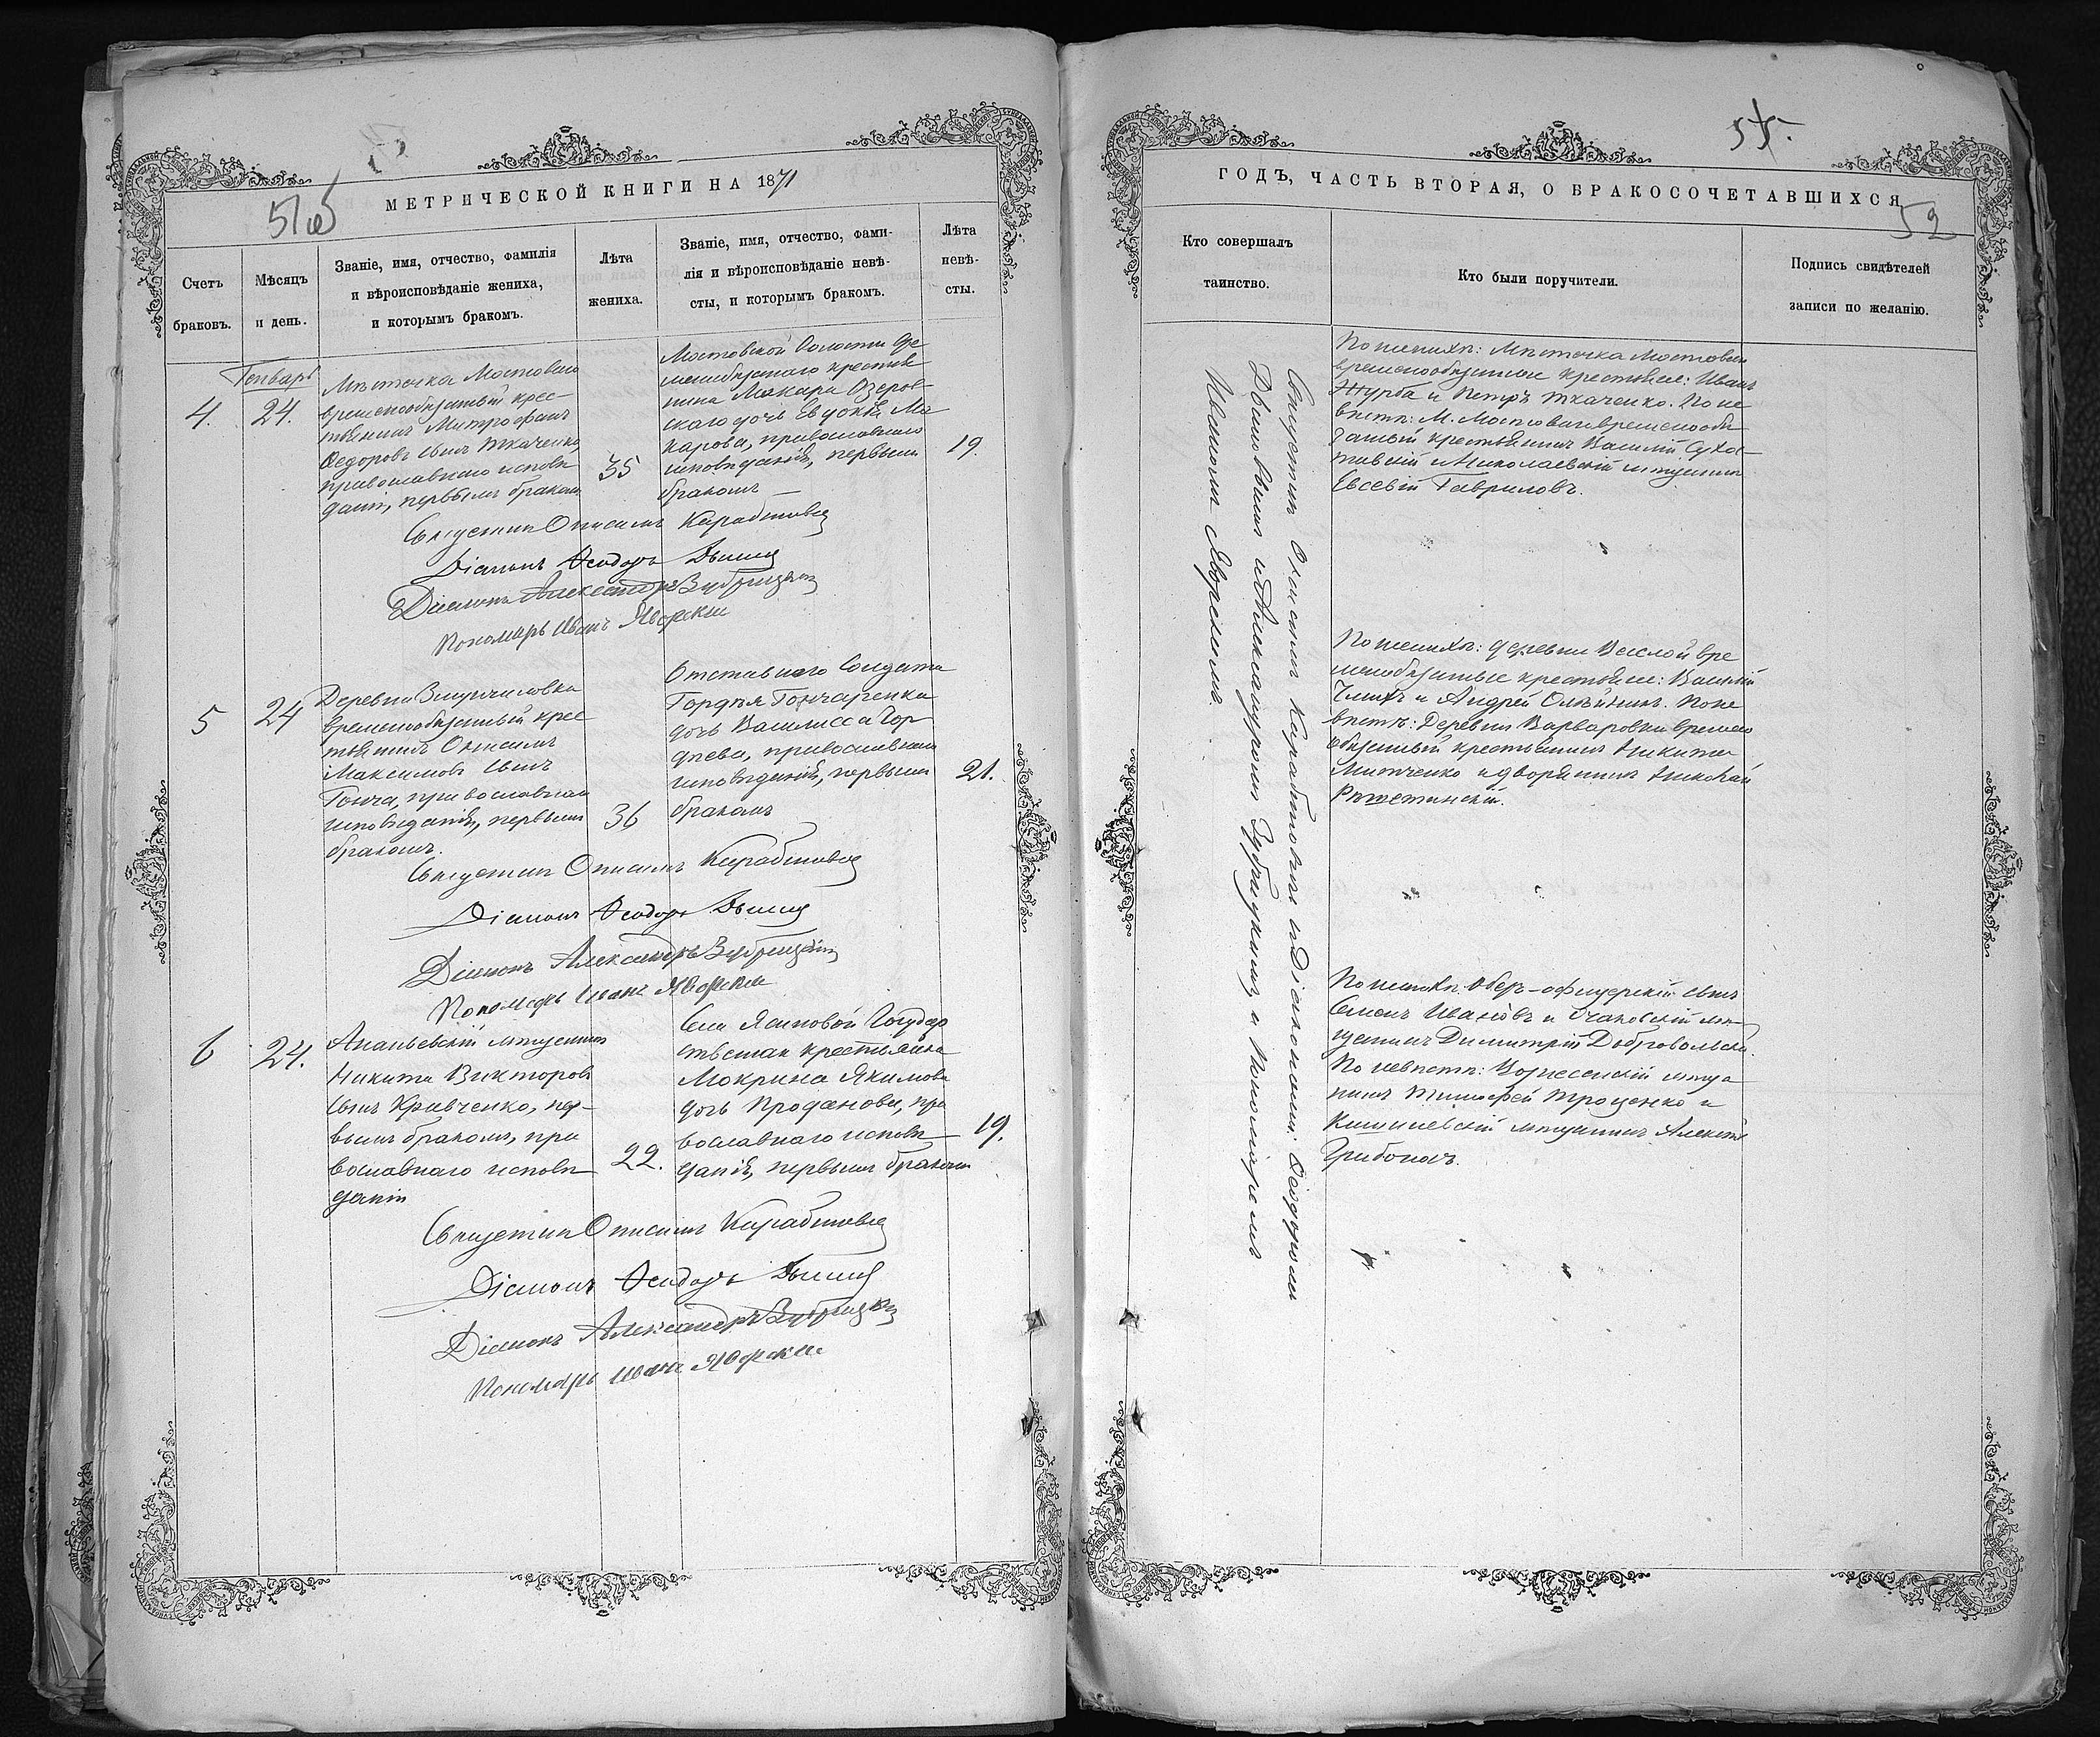 51об
МЕТРИЧЕСКОЙ КНИГИ НА 1871
Счетъ
браковъ.
Мѣсяцъ
и день.
Званіе, имя, отчество, фамилія
и вѣроисповѣданіе жениха,
и которымъ бракомъ.
Лѣта
жениха.
Званіе, имя, отчество, фами-
лія и вѣроисповѣданіе невѣ-
сты, и которымъ бракомъ.
Лѣта
невѣ-
сты.
Генварь
4.
24.
Мѣстечка Мостоваго
временнообязанный крес-
тьянинъ Митрофанъ
Ѳедоровъ сынъ Ткаченко,
православнаго исповѣ
данія, первымъ бракомъ
35
Мостовской Волости
крестья
нина Макара Озеров-
скаго дочь Евдокія Ма
карова, православнаго
исповѣданія, первымъ
бракомъ —
19.
Священникъ Онисимъ
Діаконъ Ѳеодоръ
Діаконъ Александръ Зубрицкій
Пономарь Иванъ Яворскій
5
24
Деревни
временнообязанный крес
тьянинъ Онисимъ
Максимовъ сынъ
Гонча, православнаго
исповѣданія, первымъ
бракомъ.
36
Отставнаго Солдата
Гордѣя Гончаренка
дочь Василисса Гор
дѣева, православнаго
исповѣданія, первымъ
бракомъ
21.
Священникъ Онисимъ
Діаконъ Ѳеодоръ
Діаконъ Александръ Зубрицкій
Пономарь Иванъ Яворскій
6
24.
Ананьевскій мѣщанинъ
Никита Викторовъ
сынъ Кравченко, пер-
вымъ бракомъ, пра
вославнаго исповѣ
данія
22.
Села Ясиновой Государ
ственная крестьянка
Мокрина Якимова
дочь Проданова, пра
вославнаго исповѣ
данія, первымъ бракомъ
19.
Священникъ Онисимъ
Діаконъ Ѳеодоръ
Діаконъ Александръ Зубрицкій
Пономарь Иванъ Яворскій
55.
ГОДЪ, ЧАСТЬ ВТОРАЯ, О БРАКОСОЧЕТАВШИХСЯ
52
Кто совершалъ
таинство.
Кто были поручители.
Подпись свидѣтелей
записи по желанію.
Священникъ Онисимъ и Діаконами: Ѳеодоромъ
и Александромъ Зубрицкимъ и Пономаремъ
Иваномъ Яворскимъ.
По женихѣ: Мѣстечка Мостоваго
временнообязанные крестьяне: Иванъ
Журба и Петръ Ткаченко. По не
вѣстѣ: М. Мостоваго временнообя
занный крестьянинъ Василій Суха-
тивскій и Николаевскій мѣщанинъ
Евсевій Гавриловъ.
По женихѣ: деревни Веселой вре
меннобязанные крестьяне: Василій
и Андрей Олѣйникъ. По не
вѣстѣ: Деревни Варваровки временно
обязанный крестьянинъ Никита
Митченко и дворянинъ Николай
По женихѣ: Оберъ-офицерскій сынъ
Семенъ Ивановъ и Очаковскій мѣ-
щанинъ Димитрій Добровольскій.
По невѣстѣ: Вознесенскій мѣща
нинъ Тимофей Троценко и
Кишиневскій мѣщанинъ Алексѣй